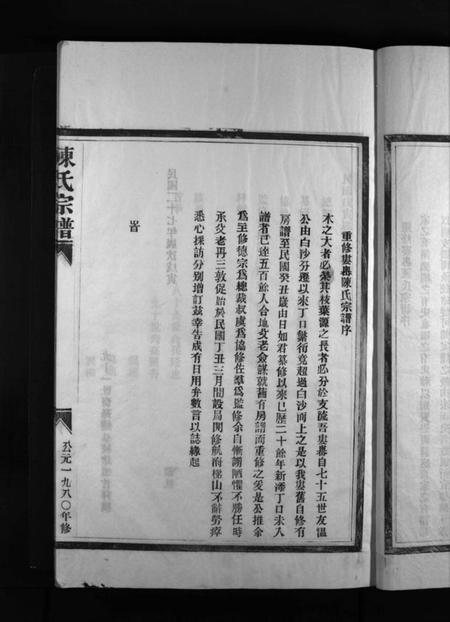 重修婁轟陳氏宗譜序
木之大者必繁其枝葉源之長者必分於支流吾婁轟自七十五世友温
公由白沙分遷以來丁口繁衍竟超過白沙而上之是以我婁舊自修有
房譜至民國癸丑歲由日如君纂修以來已歷二十餘年新添丁口未入
譜者已達五百餘人合地父老僉謀就舊有房譜而重修之爰是公推余
爲至修德宗爲總裁叔虞爲協修佐羣爲監修余自慚謭陋懼不勝任時
承父老再三敦促始於民國丁丑三月開設局開修航海梯山不辭勞瘁
悉心採訪分別增訂茲幸告成有日用弁數言以誌緣起
旹
民國二十七年歲次戊寅
陳氏宗譜
公元一九八〇年修